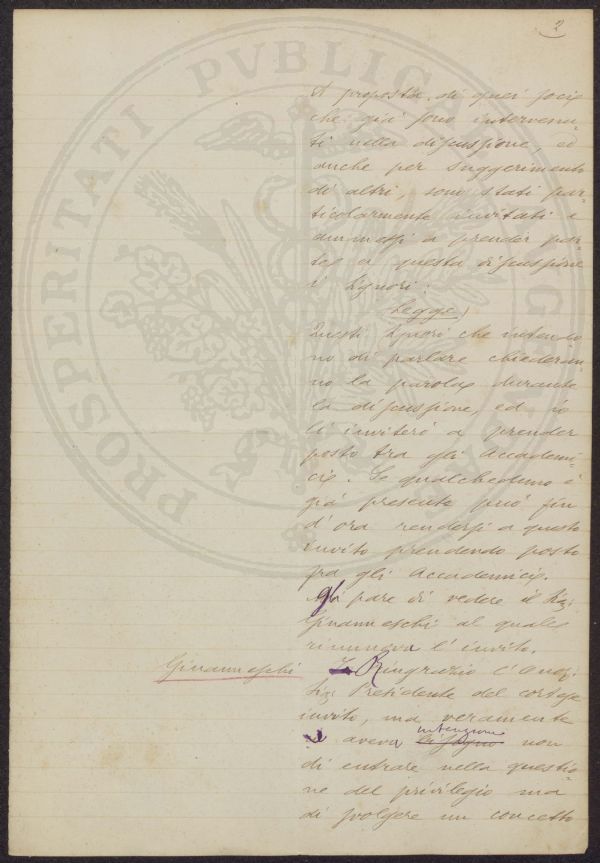 2
A proposta di quei socii
che già sono intervenu-
ti nella discussione, ed
anche per suggerimento
di altri, sono stati par-
ticolarmente invitati e
ammessi a prender par-
te a questa discussione
i Signori:
(Legge)
Questi Signori che intendo
no di parlare chiederan-
no la parola durante
la discussione, ed io
li inviterò a prender
posto tra gli Accademi-
ci. Se qualcheduno è
già presente può fin
d'ora rendersi a questo
invito prendendo posto
fra gli Accademici.
Mi pare di vedere il Sig:
Giovanneschi al quale
rinnuova l'invito.
Givanneschi
Ringrazio l'Onor:
Sig: Presidente del cortese
invito, ma veramente
intenzione
aveva bisogno non
di entrare nella questio-
ne del privilegio ma
di svolgere un concetto
PROSPERITATI PVBLICAE